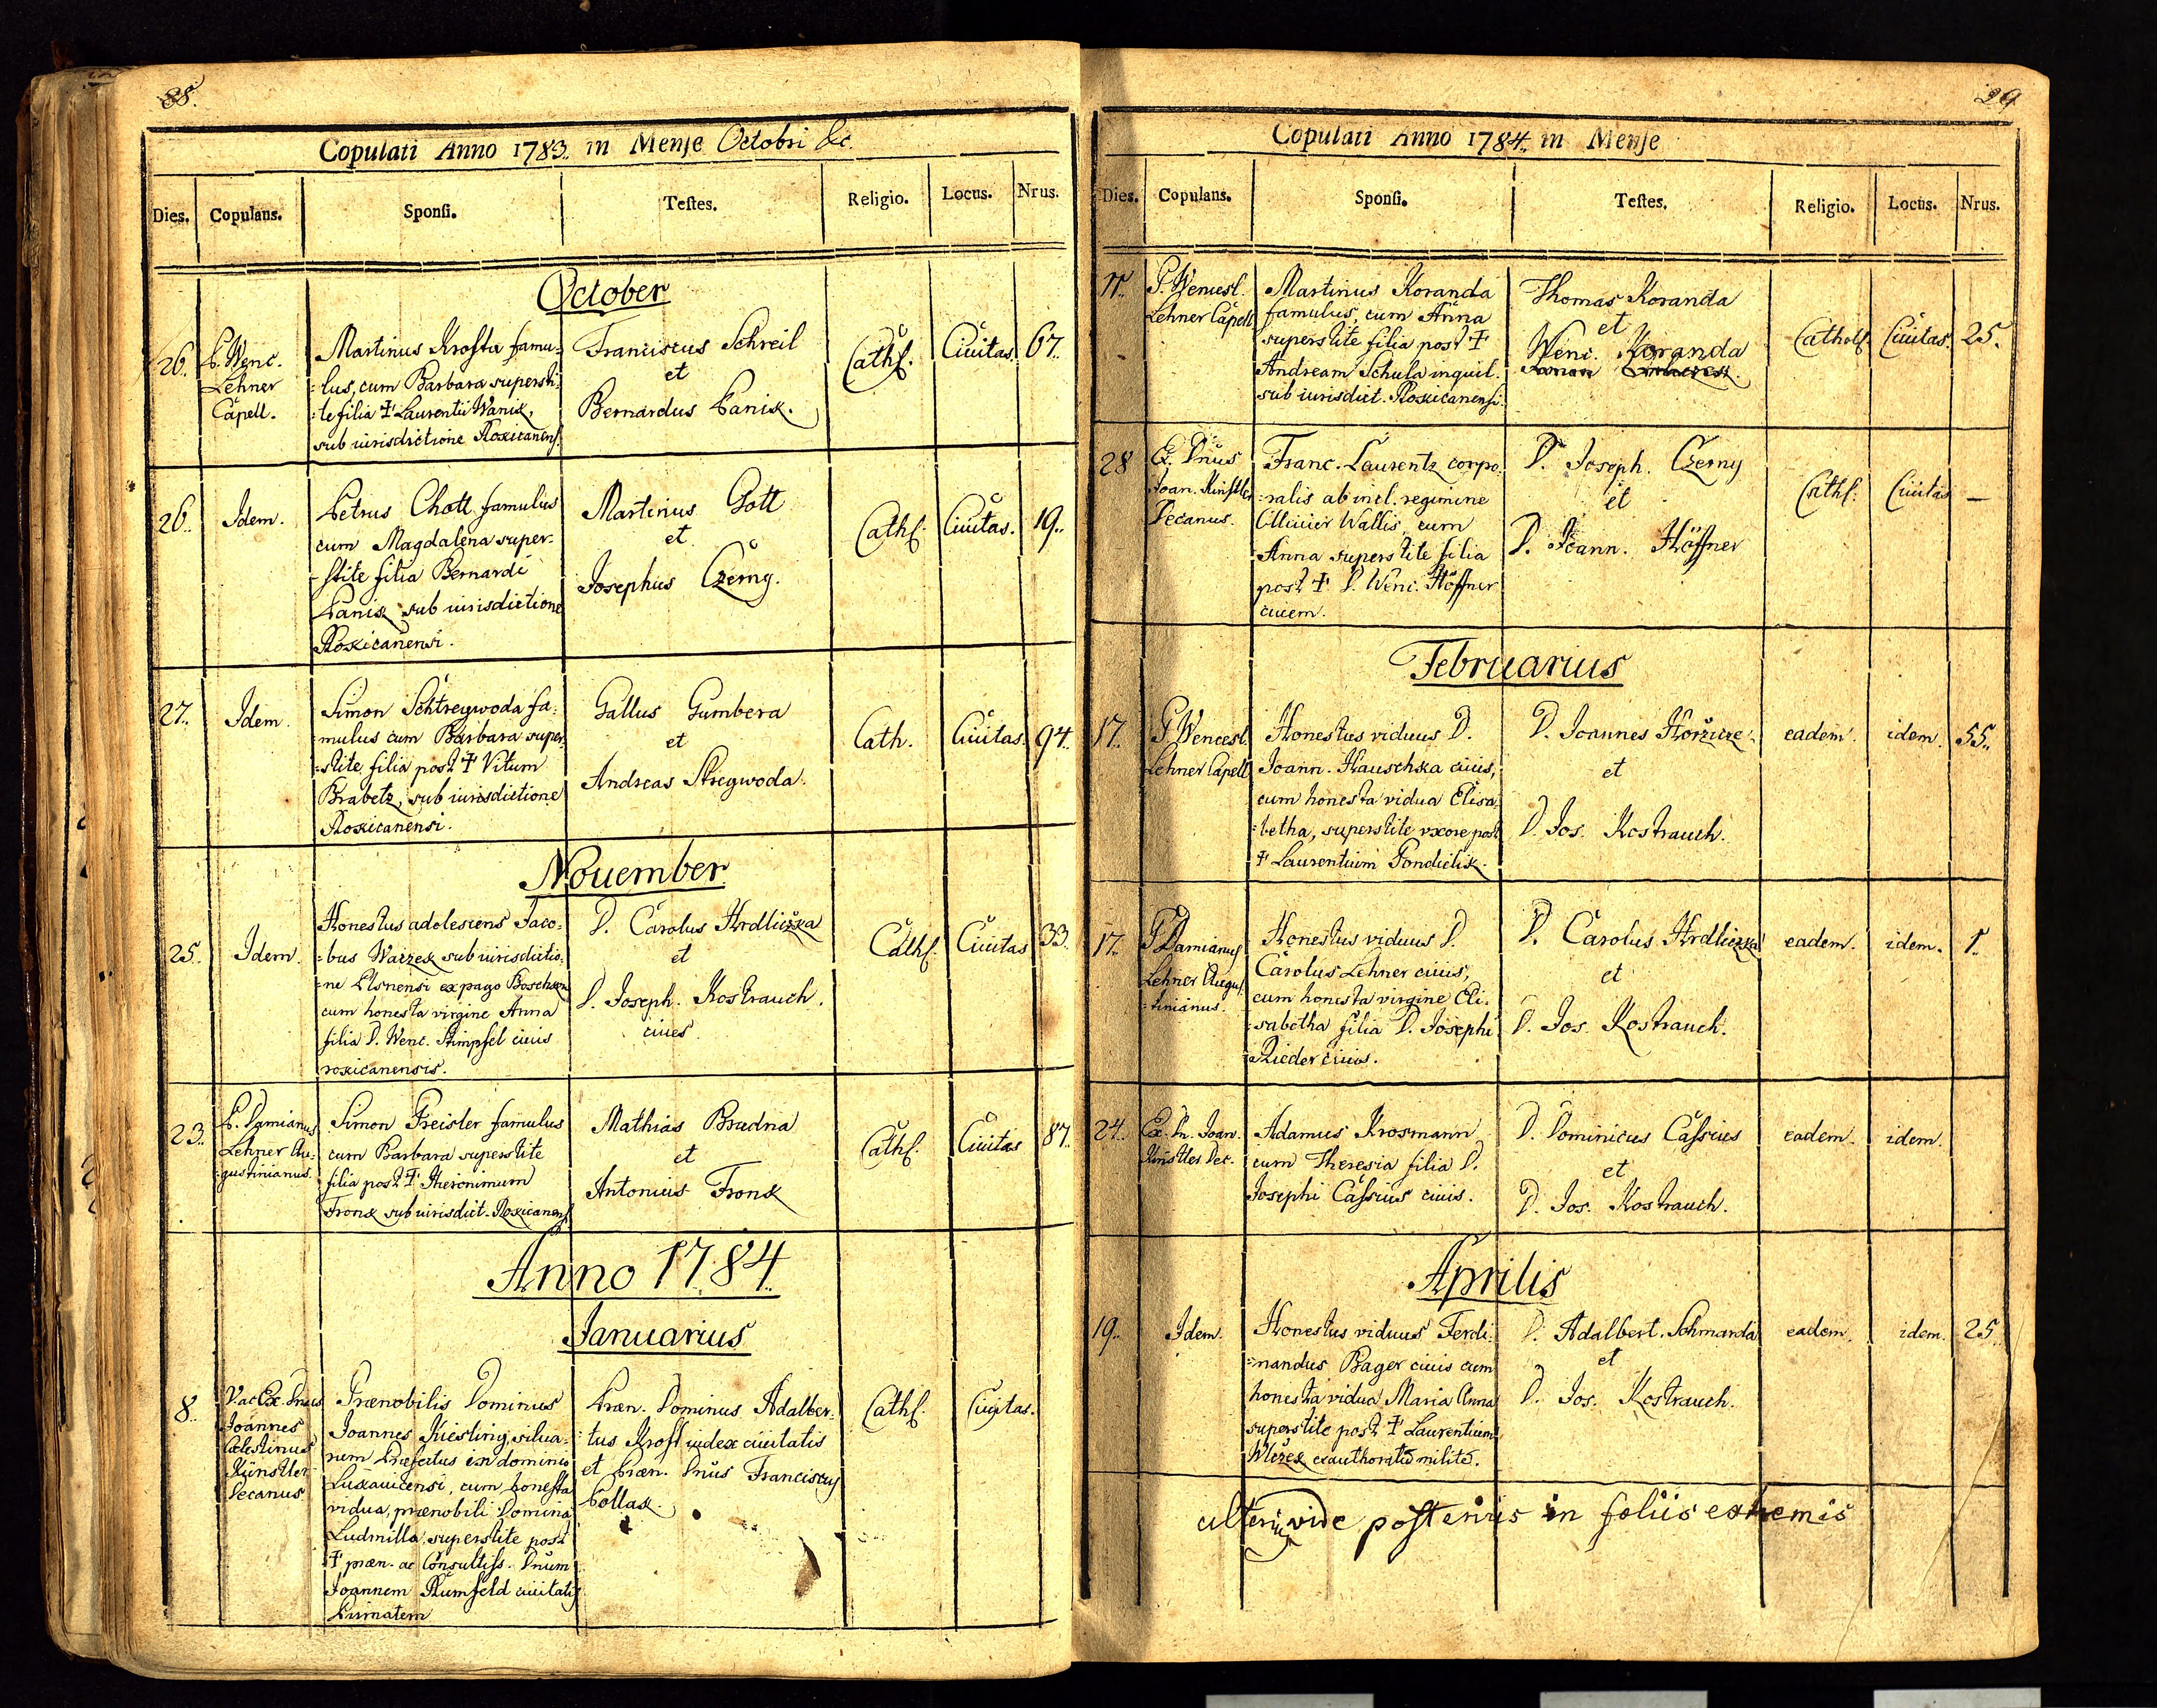 88.
Copulati Anno 1783. in Mense Octobri &c.
Dies. Copulans. Sponsi. Testes. Religio. Locus. Nrus.
October
26. P. Wenc.
Lehner
Capell.
Martinus Krosta famu-
=lus, cum Barbara supersti-
=te filia † Laurentii Wanik,
sub iurisdictione Rokicanens.
Franciscus Schreil
et
Bernardus Panik.
Cathf. Ciuitas. 67.
26. Idem.
Petrus Chott famulus
cum Magdalena super-
stite filia Bernardi
Panik sub iurisdictione
Rokicanensi.
Martinus Gott
et
Josephus Czerny.
Cathf. Ciuitas. 19.
27. Idem.
Simon Schtregwoda fa-
mulus cum Barbara super-
=stite filia post † Vitum
Brabetz, sub iurisdictione
Rokicanensi.
Gallus Gumbera
et
Andreas Stregwoda.
Cath. Ciuitas. 94.
November
25. Idem.
Honestus adolescens Jaco-
=bus Waczek sub iurisdictio-
=ne Plsnensi ex pago
cum honesta virgine Anna
filia D. Wenc. Stimpfel ciuis
rokicanensis.
D. Carolus Hrdliczka
et
D. Joseph. Kostrauch.
ciues.
Cathf. Ciuitas 33.
23. P. Damianus
Lehner Au-
gustinianus.
Simon Freisler famulus
cum Barbara superstite
filia post † Hieronimum
Fronk sub iurisdict. Rokicanens.
Mathias Brudna
et
Antonius Fronk
Cathf. Ciuitas 87.
Anno 1784.
Januarius
8. V. ac Ex. Dnus
Joannes
Celestinus
Künstler
Decanus
Prænobilis Dominus
Joannes Kiesling silua-
rum Præfectus in dominio
cum honesta
vidua, prænobili Domina
Ludmilla, superstite post
† præn. ac Consultiss. Dnum
Joannem Rumfeld ciuitatis
Primatem
Præn. Dominus Adalber-
=tus Krost iudex ciuitatis
et Præn. Dnus Franciscus
Pollak.
Cathf. Ciuitas.
29
Copulati Anno 1784. in Mense
Dies. Copulans. Sponsi. Testes. Religio. Locus. Nrus.
P. Wencesl.
Lehner Capell.
Martinus Koranda
famulus, cum Anna
superstite filia post †
Andream Schula inquil.
sub iurisdict. Rokicanensi.
Thomas Koranda
et
Wenc. Koranda
Cathol. Ciuitas. 25.
28 Ex. Dnus
Joan. Künstler
Decanus.
Franc. Laurentz corpo-
=ralis ab incl. regimine
Olliuier Wallis, cum
Anna superstite filia
post † D. Wenc. Höffner
ciuem.
D. Joseph. Czerny
et
D. Joann. Höffner
Cathf. Ciuitas —
Februarius
17. P. Wencesl.
Lehner Capell.
Honestus viduus D.
Joann. Hauschka ciuis,
cum honesta vidua Elisa-
=betha, superstite vxore post
† Laurentium Pondielik.
D. Joannes
et
D. Jos. Kostrauch.
eadem. idem. 55.
17. P. Damianus
Lehner Augus-
=tinianus.
Honestus viduus D.
Carolus Lehner ciuis,
cum honesta virgine Eli-
=sabetha filia D. Josephi
Rieder ciuis.
D. Carolus Hrdliczka
et
D. Jos. Kostrauch.
eadem. idem. 1.
24. Ex. Dn. Joan.
Künstler Dec.
Adamus Krosmann
cum Theresia filia D.
Josephi Cassius ciuis.
D. Dominicus Cassius
et
D. Jos. Kostrauch.
eadem. idem.
Aprilis
19. Idem.
Honestus viduus Ferdi-
=nandus Bager ciuis cum
honesta vidua Maria Anna
superstite post † Laurentium
Wlczek exauthorato milite.
D. Adalbert. Schmarda
et
D. Jos. Kostrauch.
eadem. idem. 25
ulterius vide posterius in foliis extremis